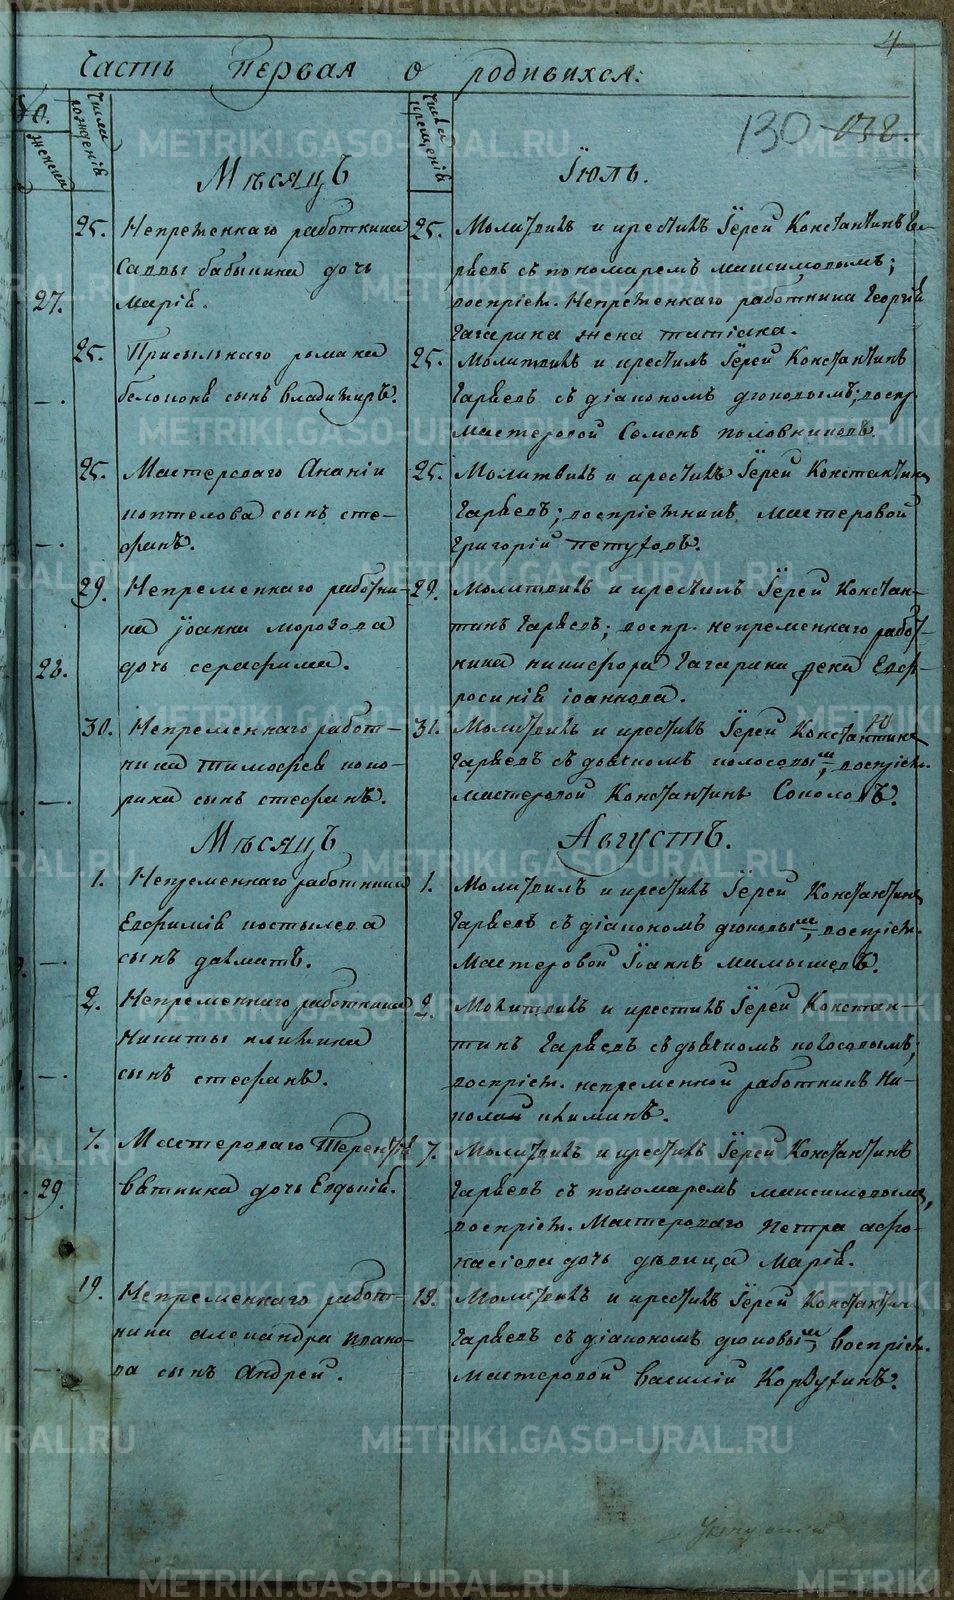 4
Часть Первая о родившихся:
130
Числа рожденiя
Числа крещенiя
женска
Мѣсяцъ
Iюль.
25. Непременнаго работника
Саввы бабыкина дочь
27. Марiя.
25. Молитвилъ и крестилъ Iерей Константинъ
Гаряевъ съ пономаремъ Максимовымъ;
воспрiем. Непременнаго работника Георгiя
Гагарина жена татiана.
25. Присыльнаго романа
белоконя сынъ владимиръ.
25. Молитвилъ и крестилъ Iерей Константинъ
Гаряевъ съ дiакономъ дюковымъ; воспр.
Мастеровой Семенъ половниковъ.
25. Мастероваго Ананiи
коптелова сынъ сте-
фанъ.
25. Молитвилъ и крестилъ Iерей Константинъ
Гаряевъ; воспрiемникъ мастеровой
Григорiй петуховъ.
29. Непременнаго работни-
ка Iоанна морозова
28. дочь серафима.
29. Молитвилъ и крестилъ Iерей Констан-
тинъ Гаряевъ; воспр. непременнаго работ-
ника никифора Гагарина жена Евф-
росинiя iоаннова.
30. Непременнаго работ-
ника тимофея коко-
рина сынъ стефанъ.
31. Молитвилъ и крестилъ Iерей Константинъ
Гаряевъ съ дьячкомъ колосовым, воспрiем.
мастеровой Константинъ Соколовъ.
Мѣсяцъ
Августъ.
1. Непременнаго работника
Евфимiя костылева
сынъ далматъ.
1. Молитвилъ и крестилъ Iерей Константинъ
Гаряевъ съ дiакономъ дюковым, воспрiем.
Мастеровой Iоаннъ мамышевъ.
2. Непременнаго работника
Никиты климина
сынъ стефанъ.
2. Молитвилъ и крестилъ Iерей Констан-
тинъ Гаряевъ съ дьячкомъ колосовымъ;
воспрiем. непременной работникъ Ни-
колай климинъ.
7. Мастероваго Терентiя
29. вяткина дочь Евдокiя.
7. Молитвилъ и крестилъ Iерей Константинъ
Гаряевъ съ пономаремъ максимовымъ,
воспрiем. Мастероваго петра афо-
насiева дочь дѣвица Марiя.
19. Непременнаго работ-
ника александра
сынъ Андрей.
19. Молитвилъ и крестилъ Iерей Константин
Гаряевъ съ дiакономъ дюковым, воспрiем.
мастеровой василiй Корзухинъ.
METRIKI.GASO-URAL.RU